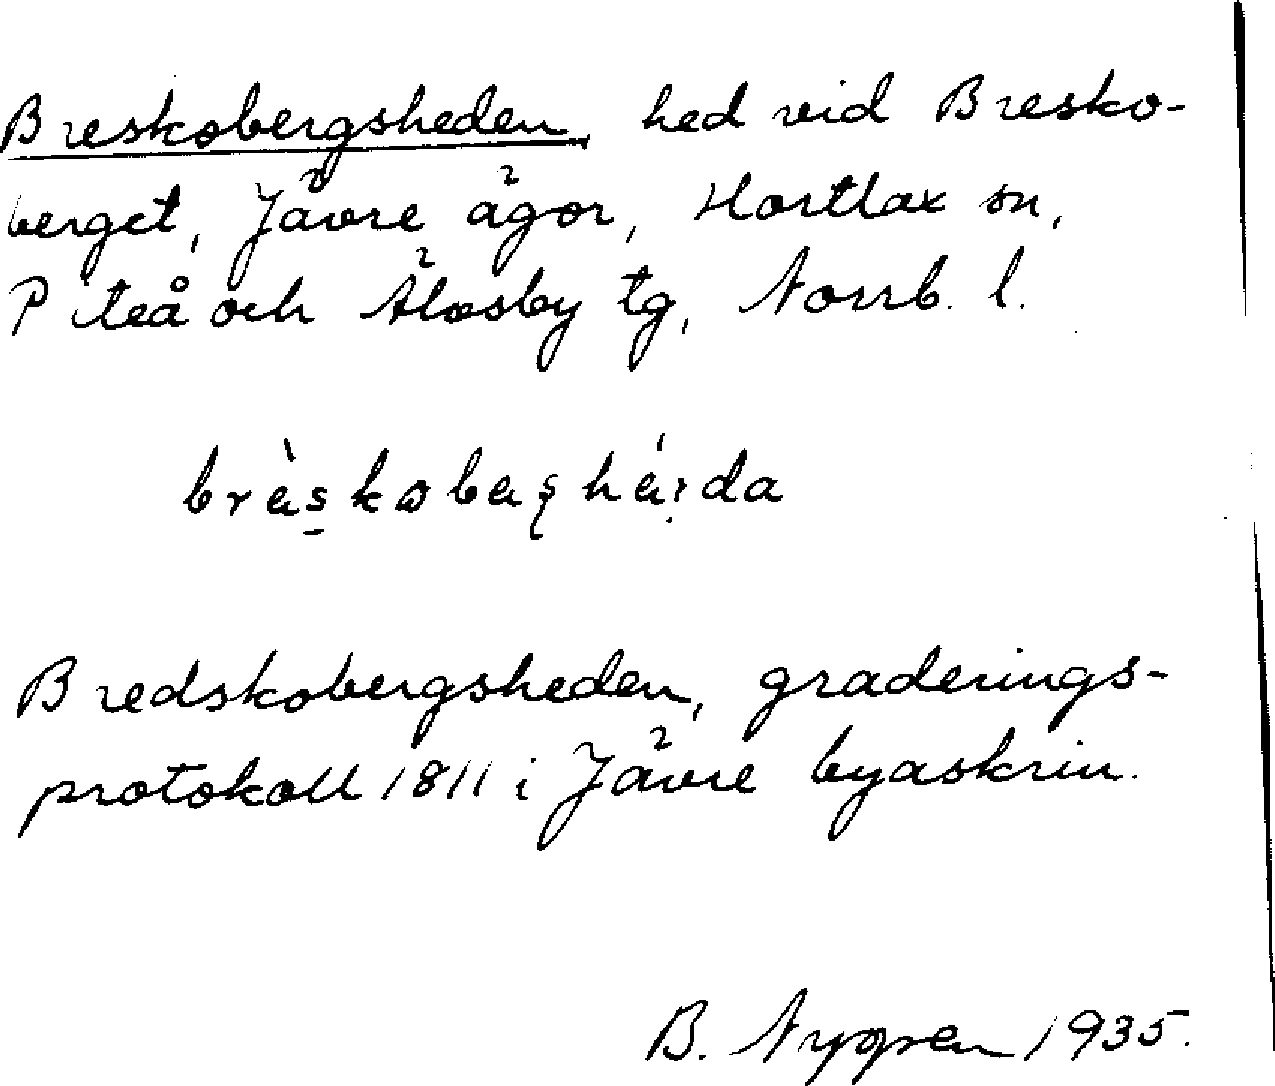 Breskobergsheden, hed vid Bresko-
berget, Jävre ägor, Hortlax sn,
Piteå och Älvsby tg, Norrb. l.
brèskobaʂhéida
Bredskobergsheden, graderings-
protokoll 1811 i Jävre byaskrin.
B. Nygren 1935.